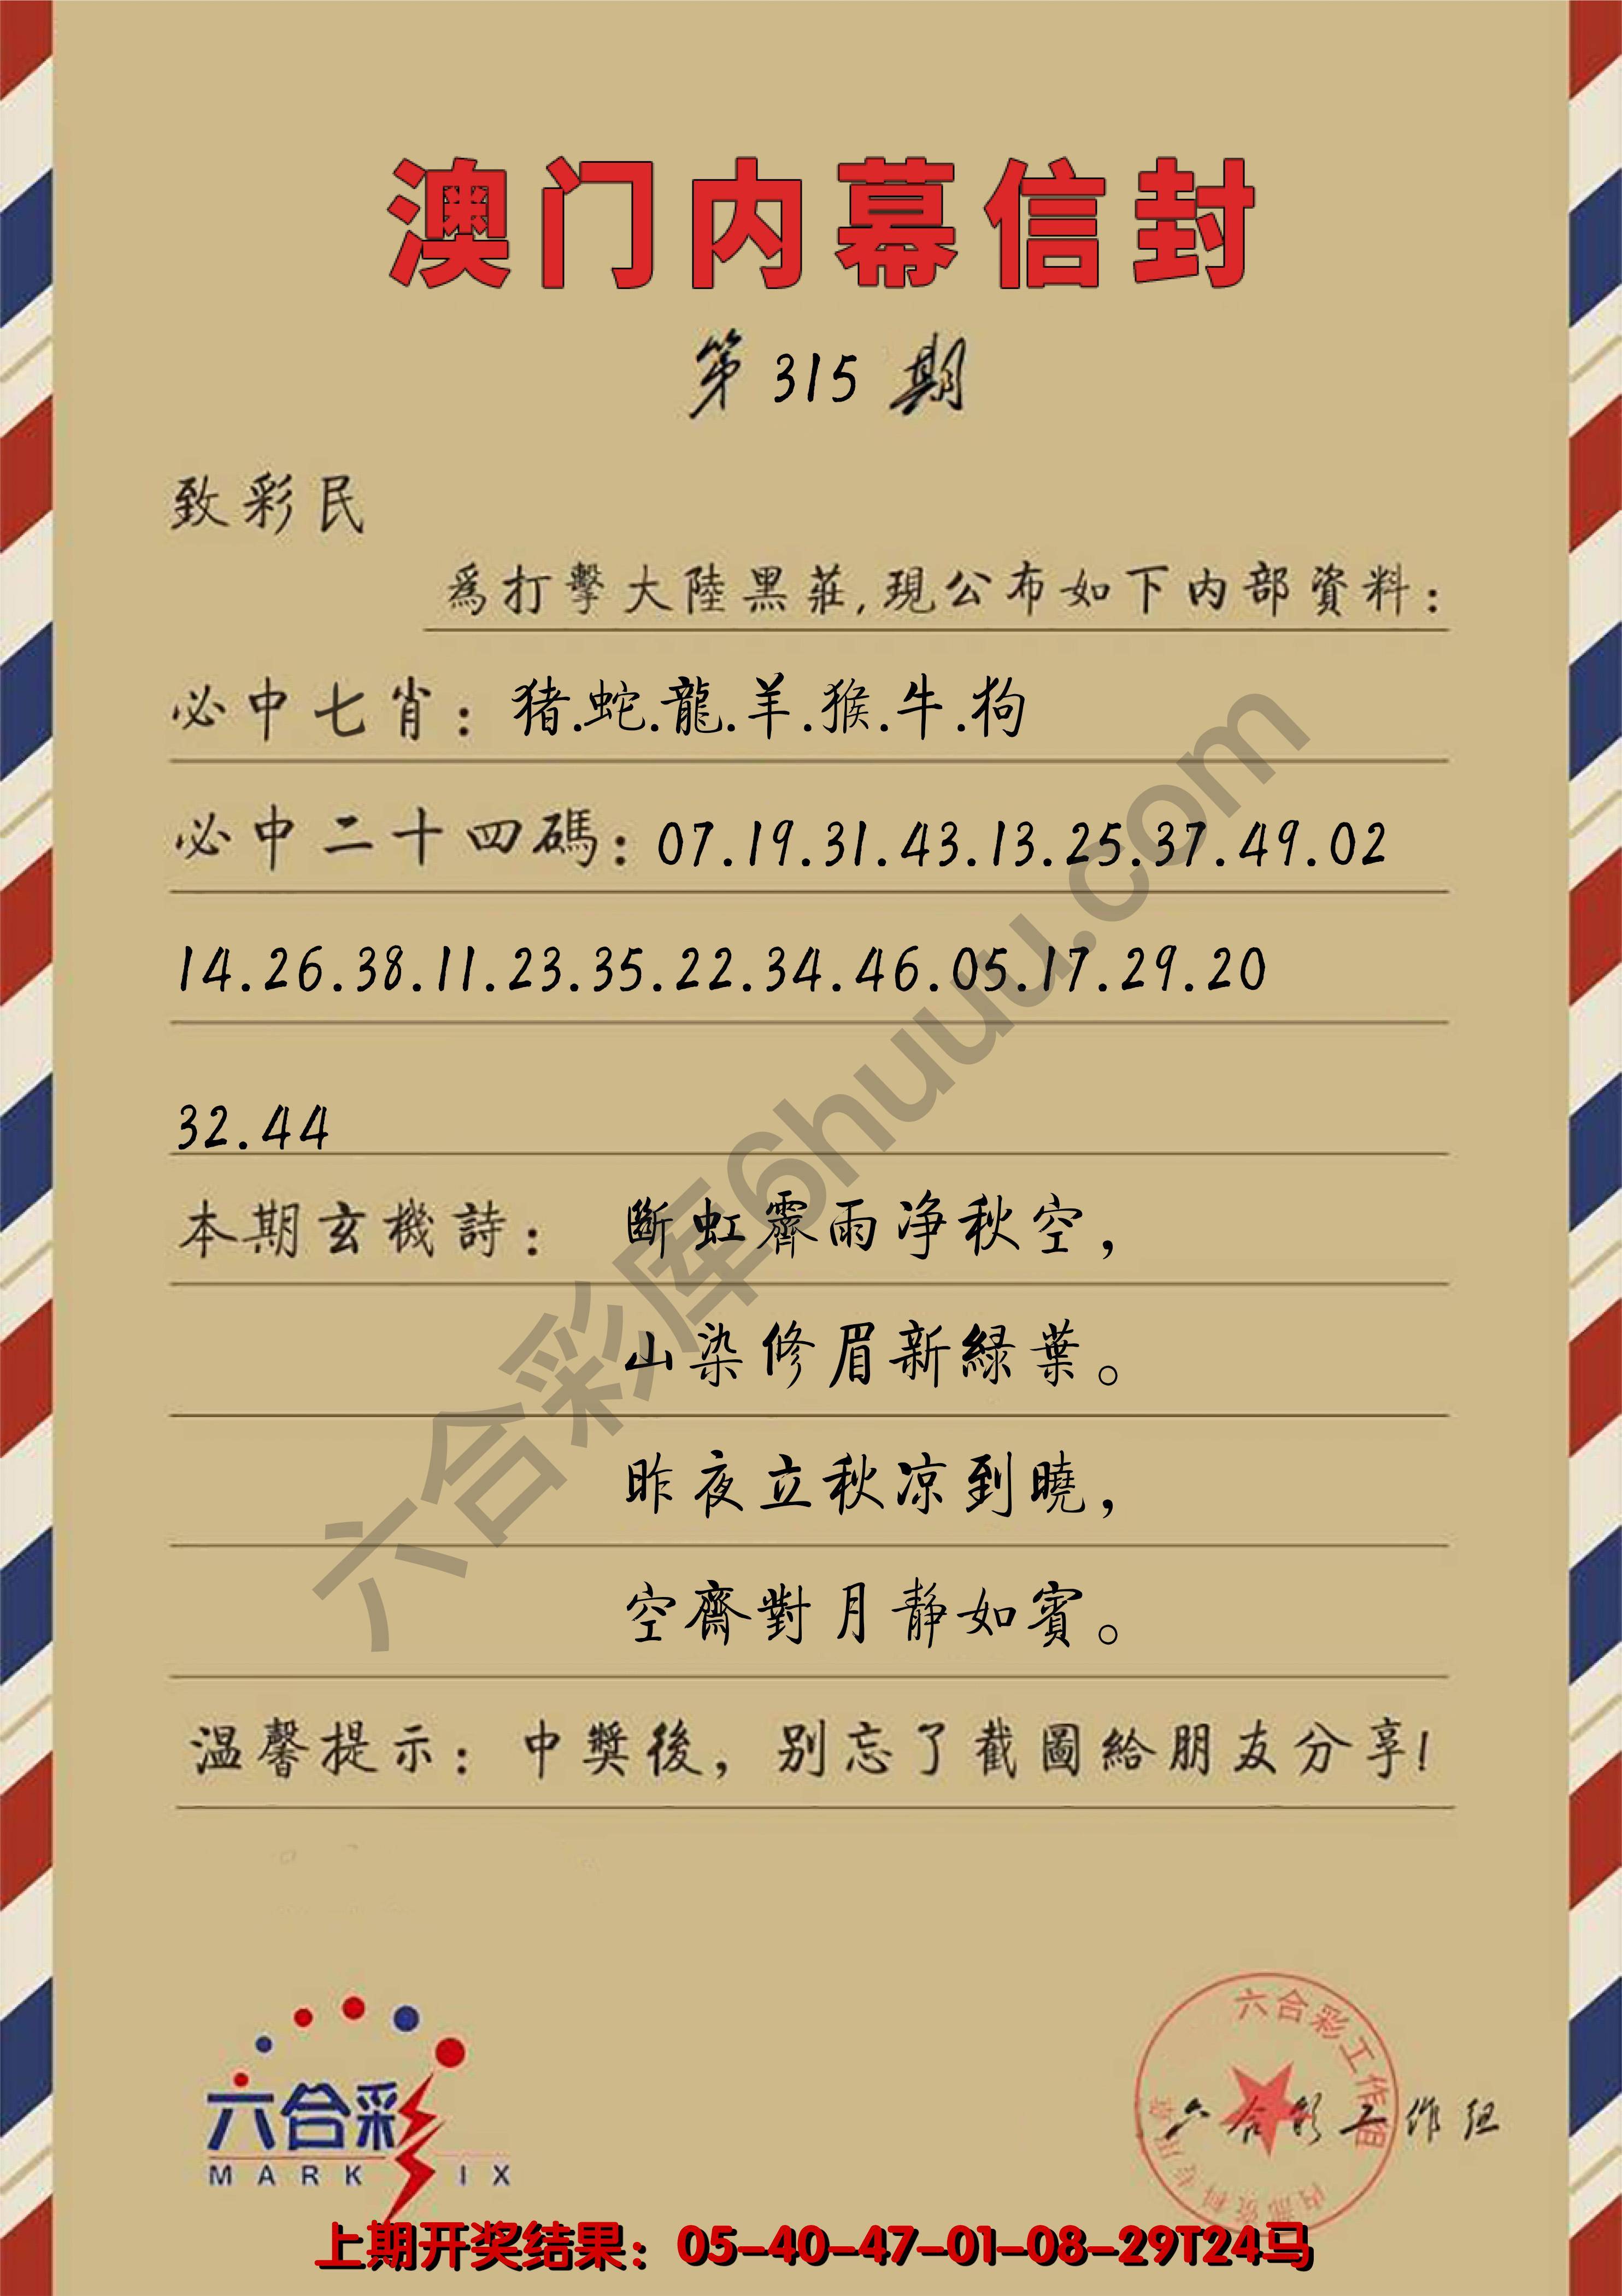 澳门内幕信封
第 315 期
致彩民
爲打擊大陸黑莊,現公布如下内部資料:
必中七肖:猪.蛇.龍.羊.猴.牛.狗
必中二十四碼:07.19.31.43.13.25.37.49.02
14.26.38.11.23.35.22.34.46.05.17.29.20
32.44
本期玄機詩: 斷虹霽雨净秋空,
山染修眉新緑葉。
昨夜立秋凉到曉,
空齋對月静如賓。
温馨提示:中獎後,别忘了截圖給朋友分享!
六合彩库6huuu.com
六合彩
MARK SIX
六合彩工作组
内部资料专用章
六合彩工作组
上期开奖结果:05-40-47-01-08-29T24马